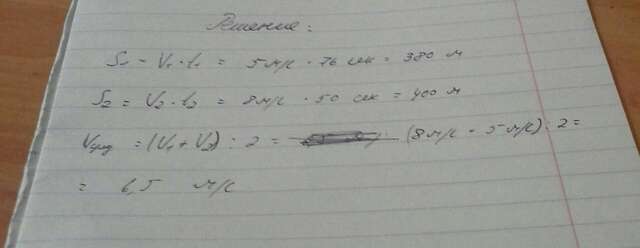 Решение:
S₁ = V₁ · t₁ = 5 м/с · 76 сек = 380 м
S₂ = V₂ · t₂ = 8 м/с · 50 сек = 400 м
Vсред = (V₁ + V₂) : 2 = (8 м/с + 5 м/с) : 2 =
= 6,5 м/с